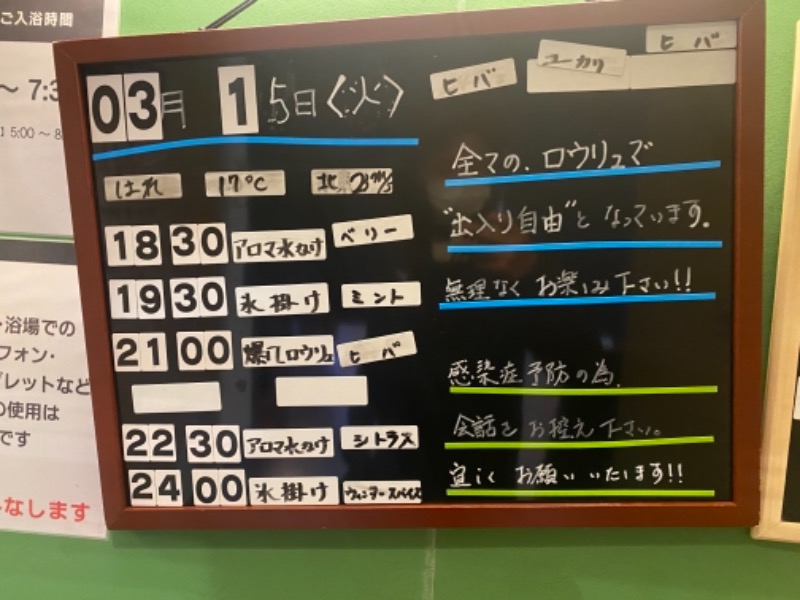 ご入浴時間
5:00～8
03月 15日〈火〉
はれ 17℃ 北
18 30 アロマ水かけ ベリー
19 30 氷掛け ミント
21 00 爆汗ロウリュ ヒバ
22 30 アロマ水かけ シトラス
24 00 氷掛け ウィンタースパイス
ヒバ ユーカリ ヒバ
全ての、ロウリュで
"出入り自由"となっています。
無理なくお楽しみ下さい!!
感染症予防の為、
会話をお控え下さい。
宜しくお願いいたします!!
・浴場での
フォン・
ブレットなど
の使用は
です
なします